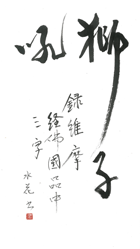 獅子
吼
錄維摩
經佛國品中
三字
水花书